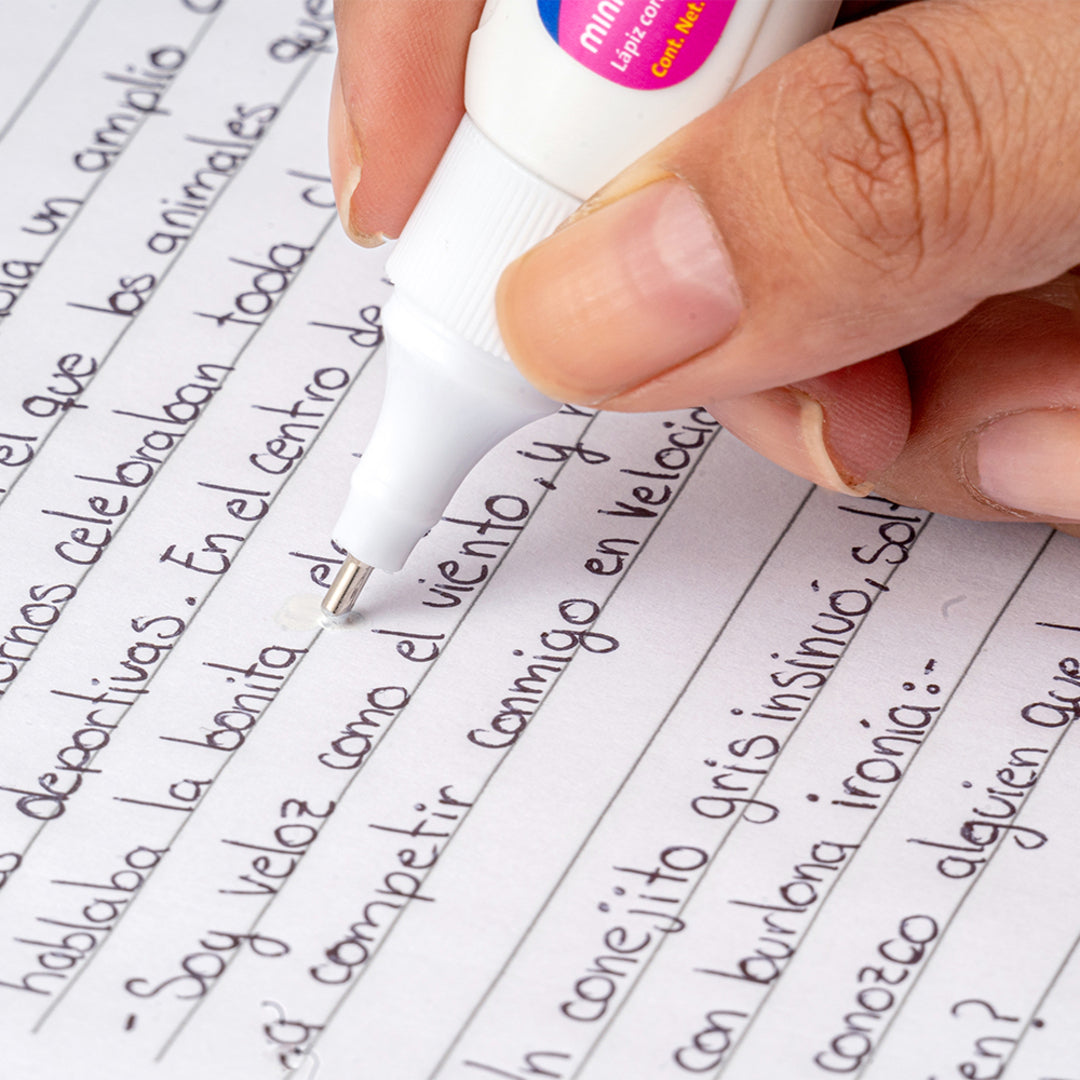 Lápiz
Cont. Net.
un amplio
el que los animales que
celebraban toda
deportivas. En el centro de
hablaba la bonita
- Soy veloz como el viento, y
competir conmigo en
conejito gris insinuó,
con burlona ironía:-
conozco alguien que